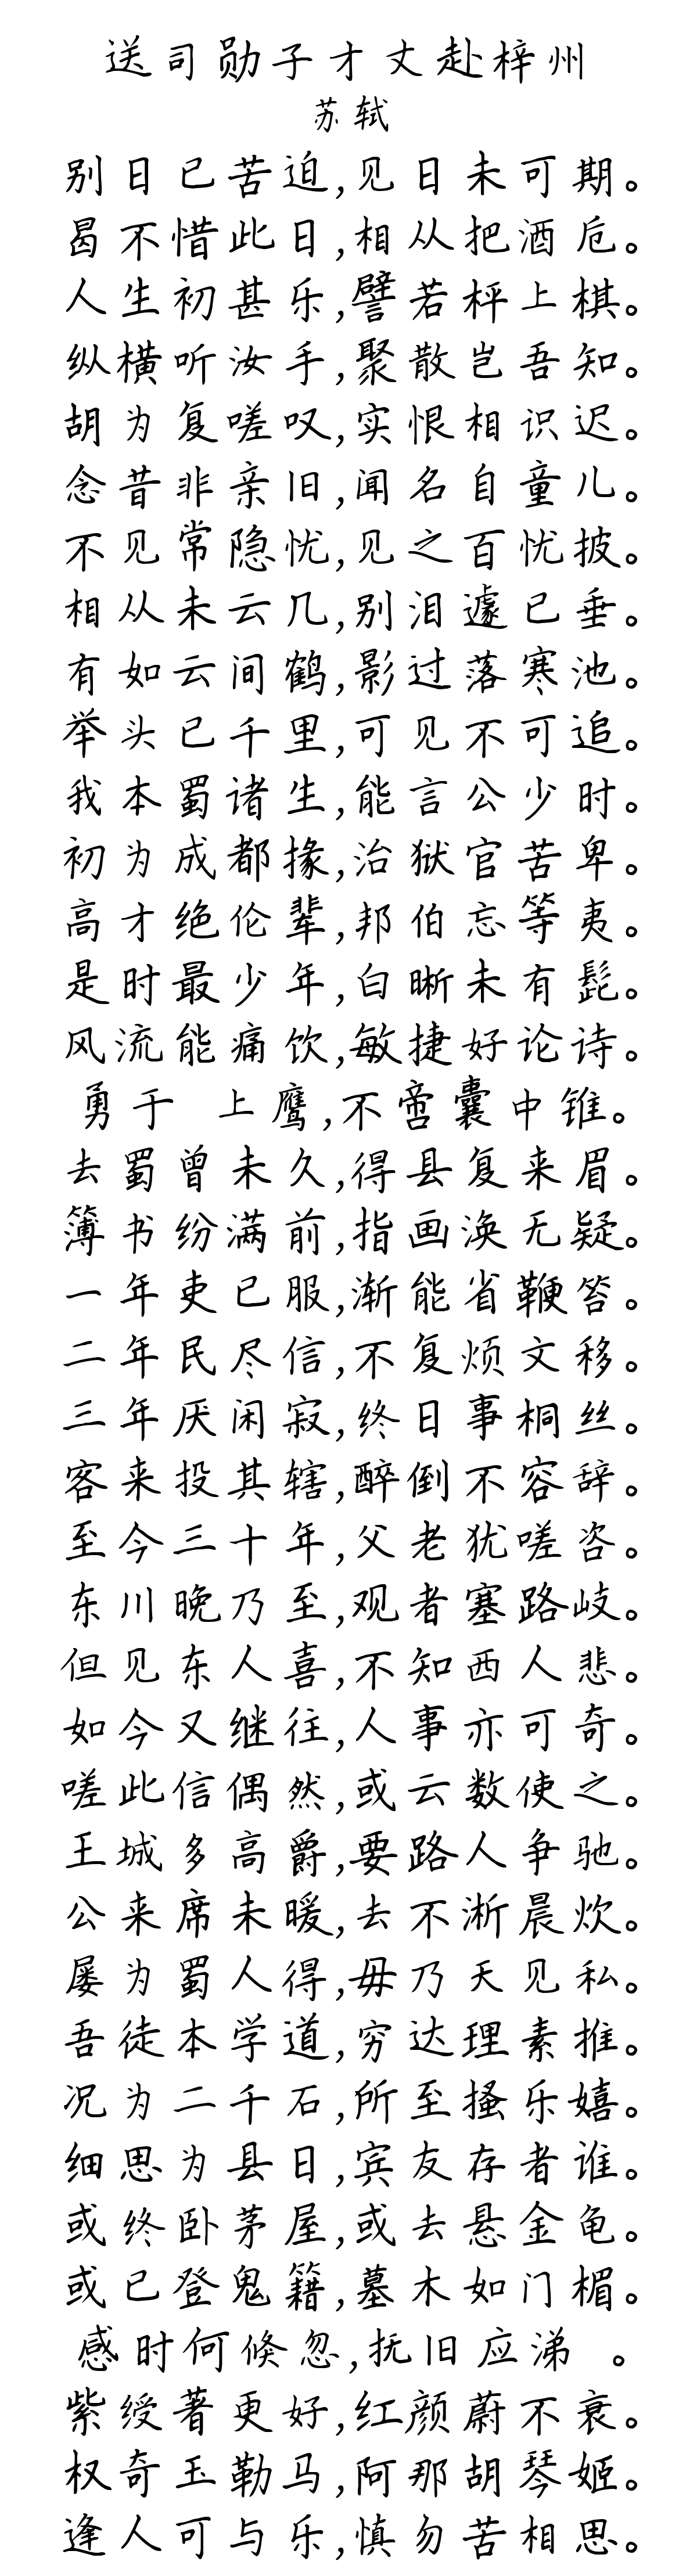 送司勋子才丈赴梓州
苏轼
别日已苦迫,见日未可期。
曷不惜此日,相从把酒卮。
人生初甚乐,譬若枰上棋。
纵横听汝手,聚散岂吾知。
胡为复嗟叹,实恨相识迟。
念昔非亲旧,闻名自童儿。
不见常隐忧,见之百忧披。
相从未云几,别泪遽已垂。
有如云间鹤,影过落寒池。
举头已千里,可见不可追。
我本蜀诸生,能言公少时。
初为成都掾,治狱官苦卑。
高才绝伦辈,邦伯忘等夷。
是时最少年,白晰未有髭。
风流能痛饮,敏捷好论诗。
勇于 上鹰,不啻囊中锥。
去蜀曾未久,得县复来眉。
簿书纷满前,指画涣无疑。
一年吏已服,渐能省鞭笞。
二年民尽信,不复烦文移。
三年厌闲寂,终日事桐丝。
客来投其辖,醉倒不容辞。
至今三十年,父老犹嗟咨。
东川晚乃至,观者塞路岐。
但见东人喜,不知西人悲。
如今又继往,人事亦可奇。
嗟此信偶然,或云数使之。
王城多高爵,要路人争驰。
公来席未暖,去不淅晨炊。
屡为蜀人得,毋乃天见私。
吾徒本学道,穷达理素推。
况为二千石,所至搔乐嬉。
细思为县日,宾友存者谁。
或终卧茅屋,或去悬金龟。
或已登鬼籍,墓木如门楣。
感时何倏忽,抚旧应涕 。
紫绶著更好,红颜蔚不衰。
权奇玉勒马,阿那胡琴姬。
逢人可与乐,慎勿苦相思。